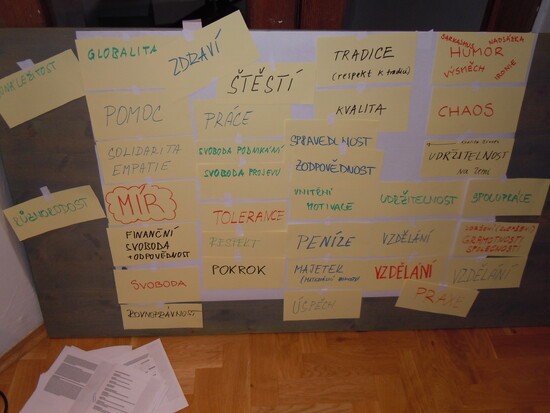 GLOBALITA
ZDRAVÍ
ŠTĚSTÍ
TRADICE
(respekt k tradici)
SARKASMUS NADSÁZKA
HUMOR
VÝSMĚCH IRONIE
POMOC
PRÁCE
KVALITA
CHAOS
SOLIDARITA
EMPATIE
SVOBODA PODNIKÁNÍ
SVOBODA PROJEVU
SPRAVEDLNOST
ZODPOVĚDNOST
UDRŽITELNOST
RŮZNORODOST
MÍR
TOLERANCE
VNITŘNÍ
MOTIVACE
UDRŽITELNOST
SPOLUPRÁCE
FINANČNÍ
SVOBODA
+ ODPOVĚDNOST
RESPEKT
PENÍZE
VZDĚLÁNÍ
GRAMOTNOSTI
SVOBODA
POKROK
MAJETEK
VZDĚLÁNÍ
VZDĚLÁNÍ
ROVNOPRÁVNOST
ÚSPĚCH
PRAXE